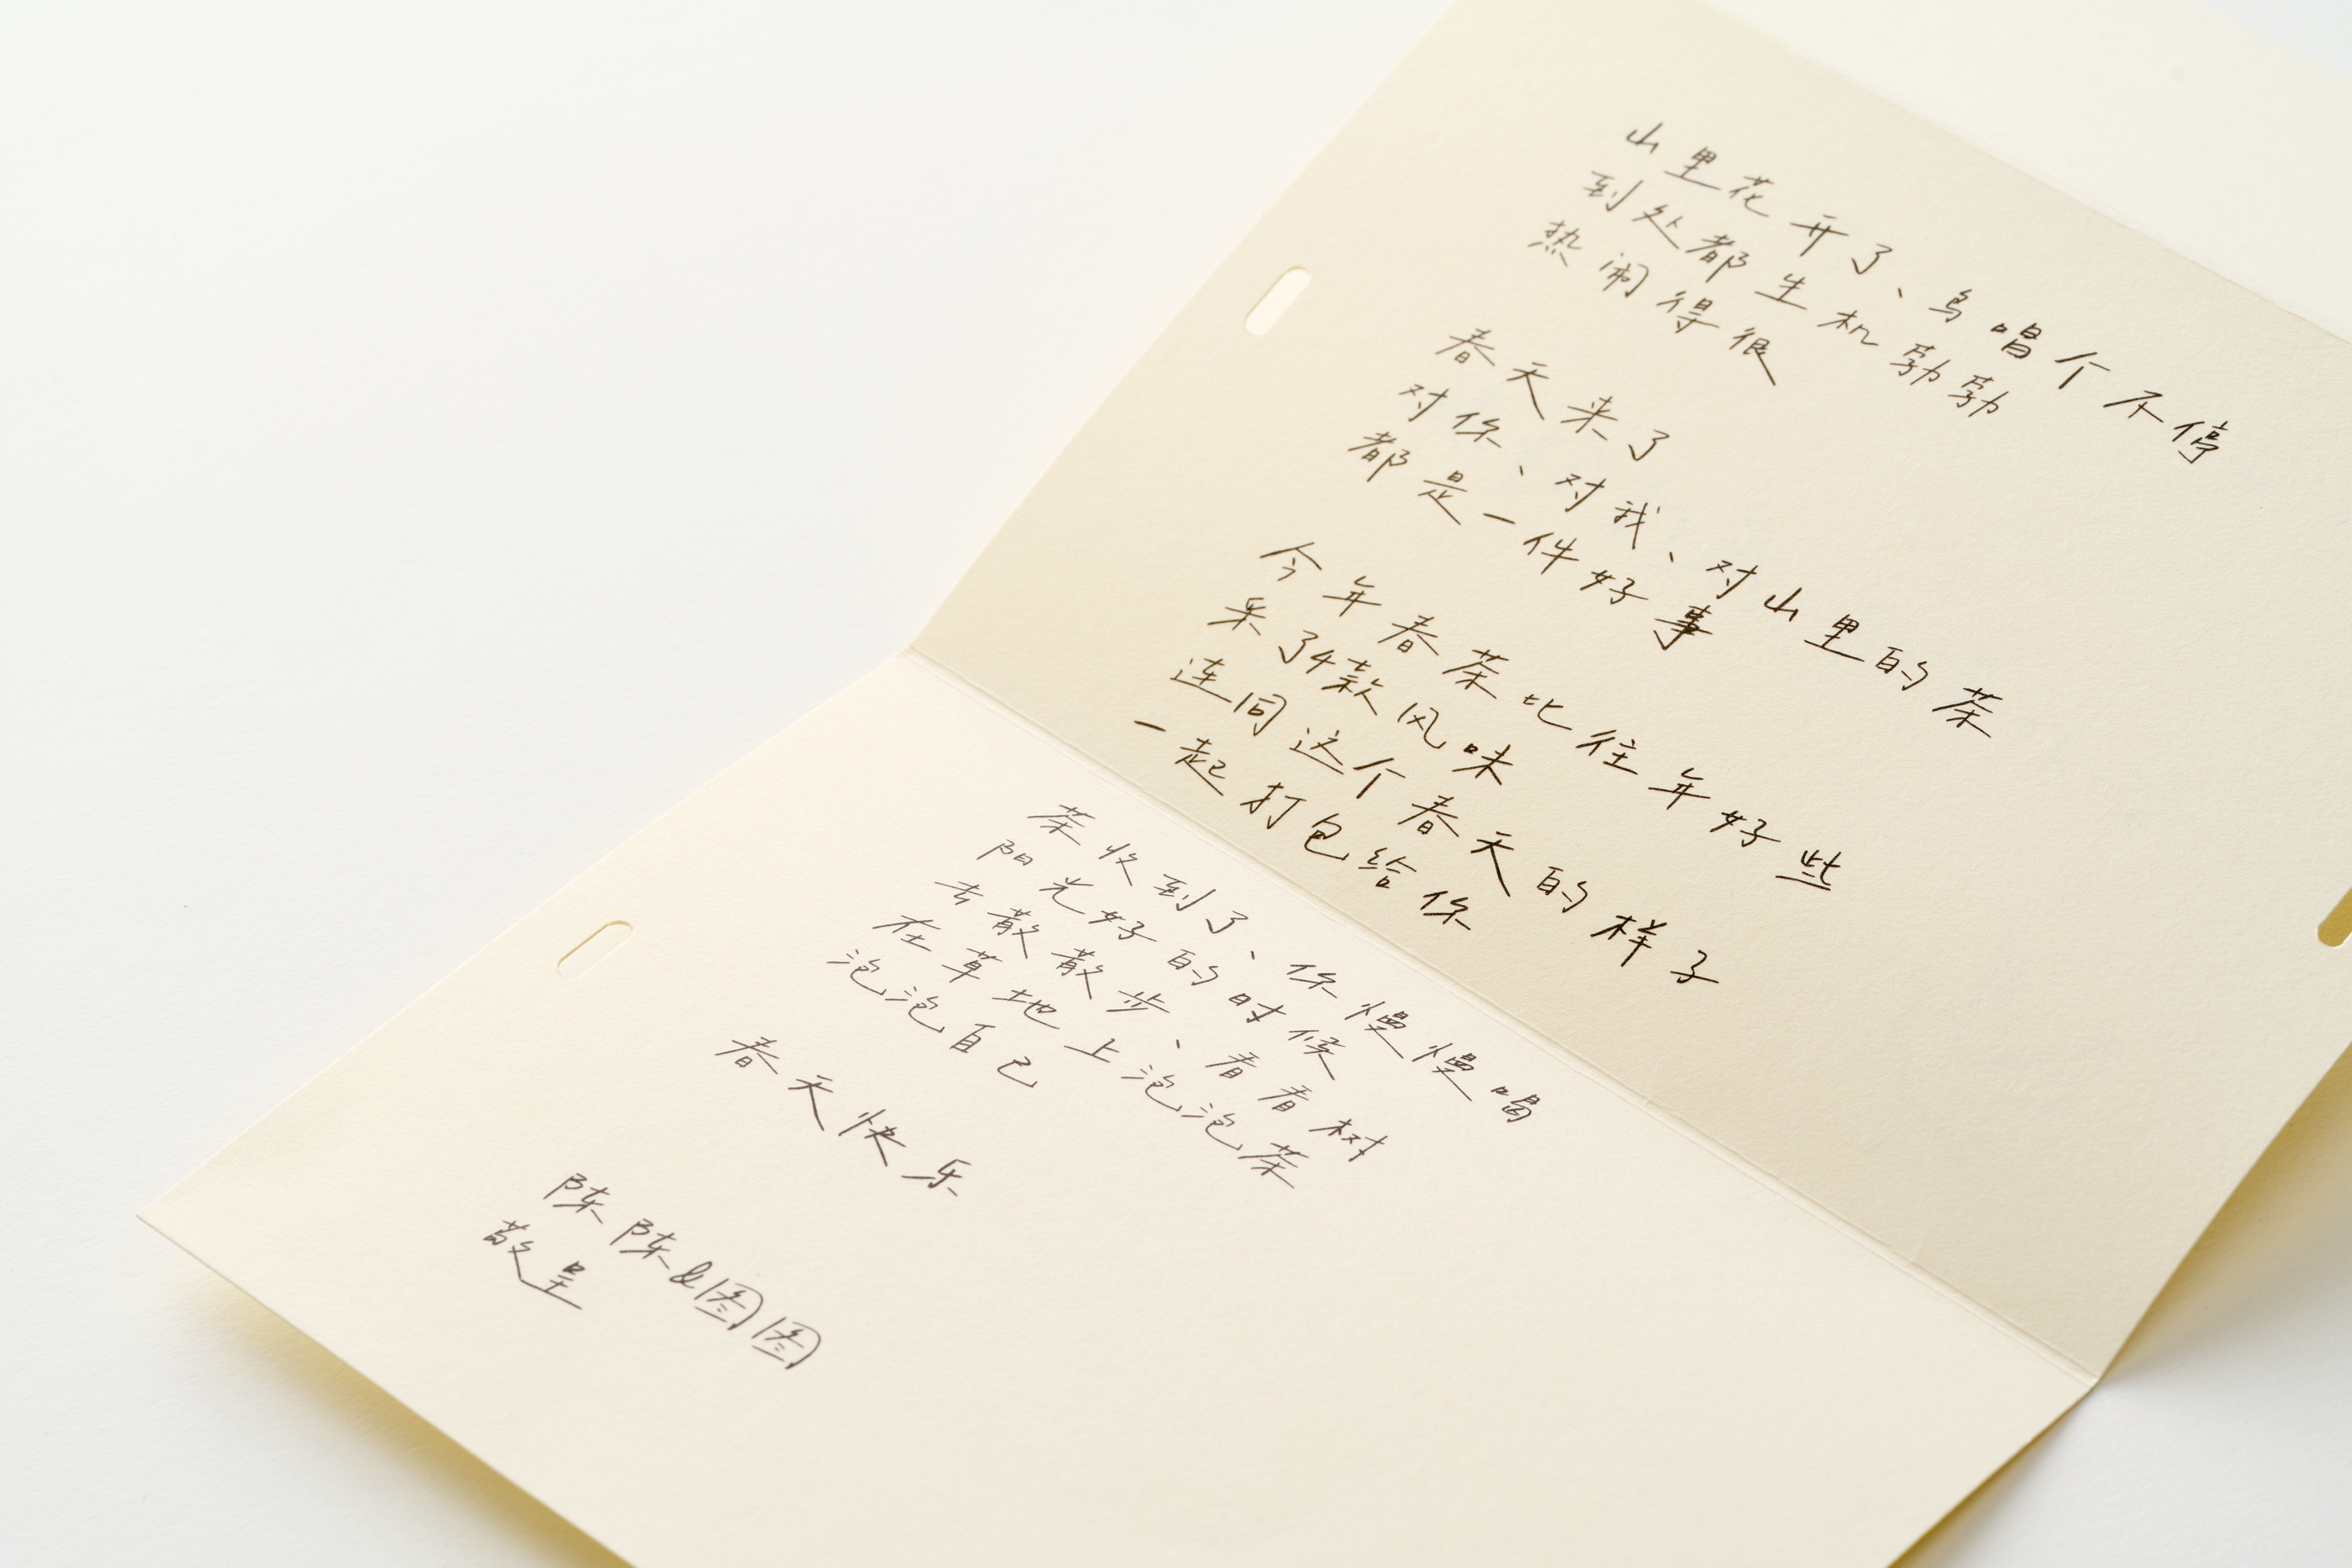 山里花开了、鸟唱个不停
到处都生机勃勃
热闹得很
春天来了
对你、对我、对山里的茶
都是一件好事
今年春茶比往年好些
采了4款风味
连同这个春天的样子
一起打包给你
茶收到了、你慢慢喝
阳光好的时候
去散散步、看看树
在草地上泡泡茶
泡泡自己
春天快乐
陈陈&图图
敬呈